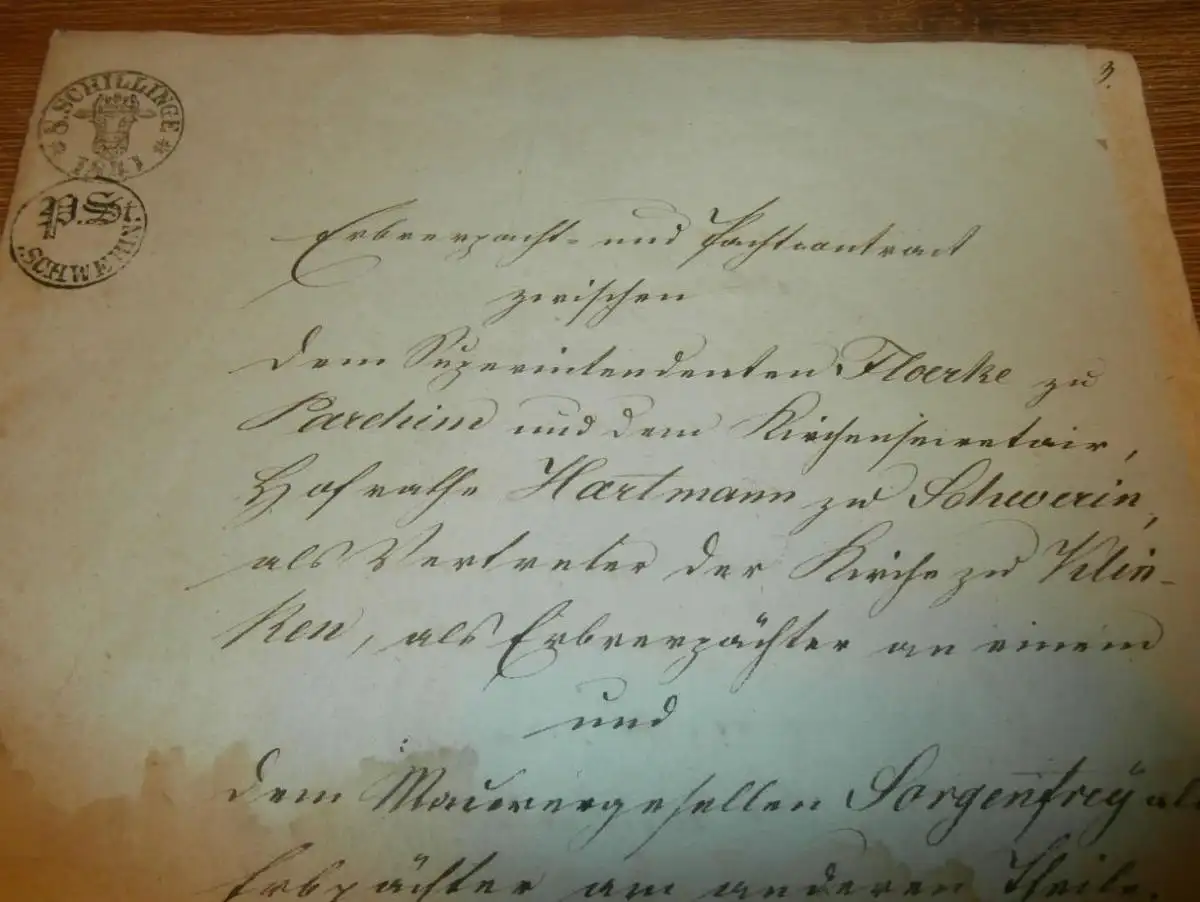 8. SCHILLINGE
P. St.
SCHWERIN.
3.
Erbverpacht- und Pachtcontract
zwischen
dem Superintendenten Floerke zu
Parchim und dem Kirchensecretair,
Hofrathe Hartmann zu Schwerin,
als Vertreter der Kirche zu Klin-
ken, als Erbverpächter an einem
und
dem Maurergesellen Sorgenfrey als
Erbpächter am anderen Theile.